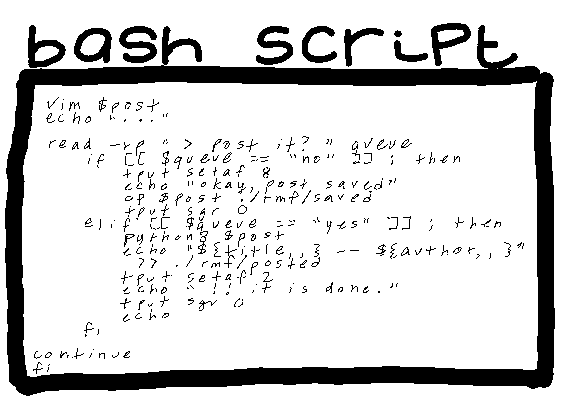 bash script
vim $post
echo "..."
read -rp " > post it? " queue
if [[ $queue == "no" ]] ; then
tput setaf 8
echo "okay, post saved"
cp $post ./rmf/saved
tput sgr 0
elif [[ $queue == "yes" ]] ; then
python3 $post
echo "${title,,} -- ${author,,}"
>> ./rmf/posted
tput setaf 2
echo " !! it is done."
tput sgr 0
echo
fi
continue
fi